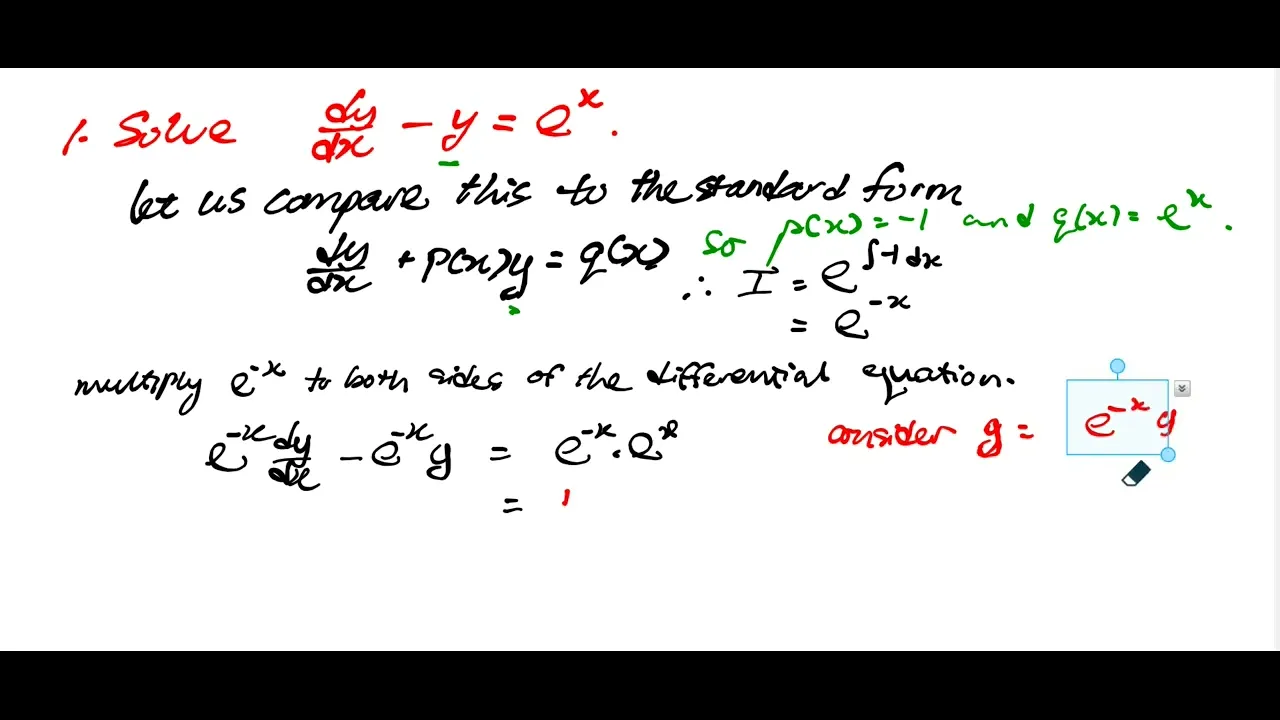 1. Solve dy/dx − y = e^x.
let us compare this to the standard form
dy/dx + p(x)y = q(x) so p(x) = -1 and q(x) = e^x.
∴ I = e^∫-1dx
= e^-x
multiply e^-x to both sides of the differential equation.
e^-x dy/dx − e^-x y = e^-x . e^x consider g = e^-x y
= 1